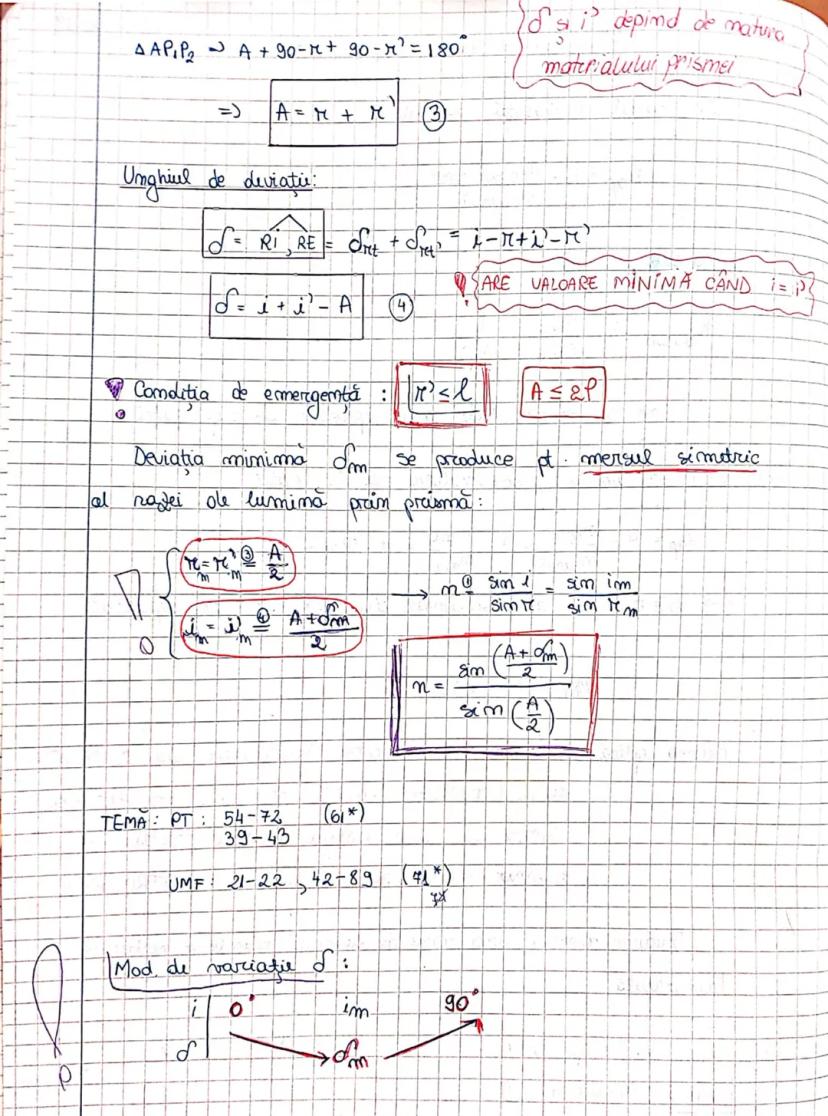 δ și i' depind de natura
materialului prismei
Δ AP₁P₂ ⇒ A + 90-r + 90-r' = 180°
=> A = r + r' ③
Unghiul de deviație:
δ = RI, RE = δrt + δrt' = i-r+i'-r'
δ = i + i' - A ④
! ARE VALOARE MINIMĂ CÂND i = i'
! Condiția de emergență : r' ≤ l A ≤ 2l
Deviația minimă δm se produce pt. mersul simetric
al razei de lumină prin prismă:
! rm = r'm ③= A/2
im = i'm ④= (A+δm)/2
→ n ①= sin i / sin r = sin im / sin rm
n = sin ((A+δm)/2) / sin (A/2)
TEMĂ: PT: 54-72 (61*)
39-43
UMF: 21-22, 42-89 (71*)
! Mod de variație δ:
i | 0° im 90°
δ | → δm →